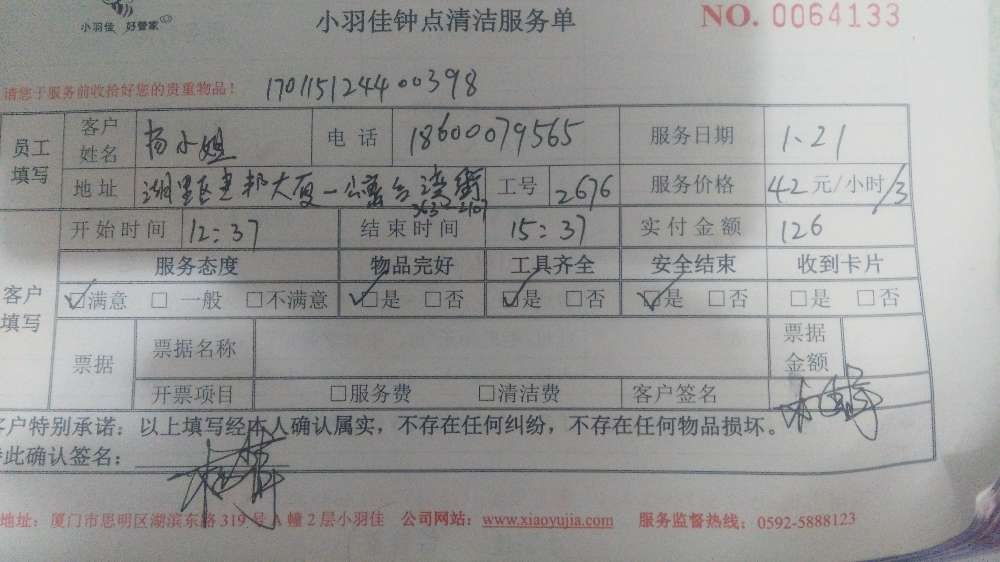 小羽佳 好管家
小羽佳钟点清洁服务单
NO. 0064133
请您于服务前收拾好您的贵重物品！ 17011512440 0398
员工填写 客户姓名 杨小姐 电话 18600079565 服务日期 1.21
地址 湖里区建邦大厦一公寓 工号 2676 服务价格 42元/小时/3
开始时间 12:37 结束时间 15:37 实付金额 126
客户填写 服务态度 物品完好 工具齐全 安全结束 收到卡片
☑满意 □一般 □不满意 ☑是 □否 ☑是 □否 ☑是 □否 □是 □否
票据 票据名称 票据金额
开票项目 □服务费 □清洁费 客户签名
客户特别承诺：以上填写经本人确认属实，不存在任何纠纷，不存在任何物品损坏。
特此确认签名：
地址：厦门市思明区湖滨东路319号A幢2层小羽佳 公司网站：www.xiaoyujia.com 服务监督热线：0592-5888123